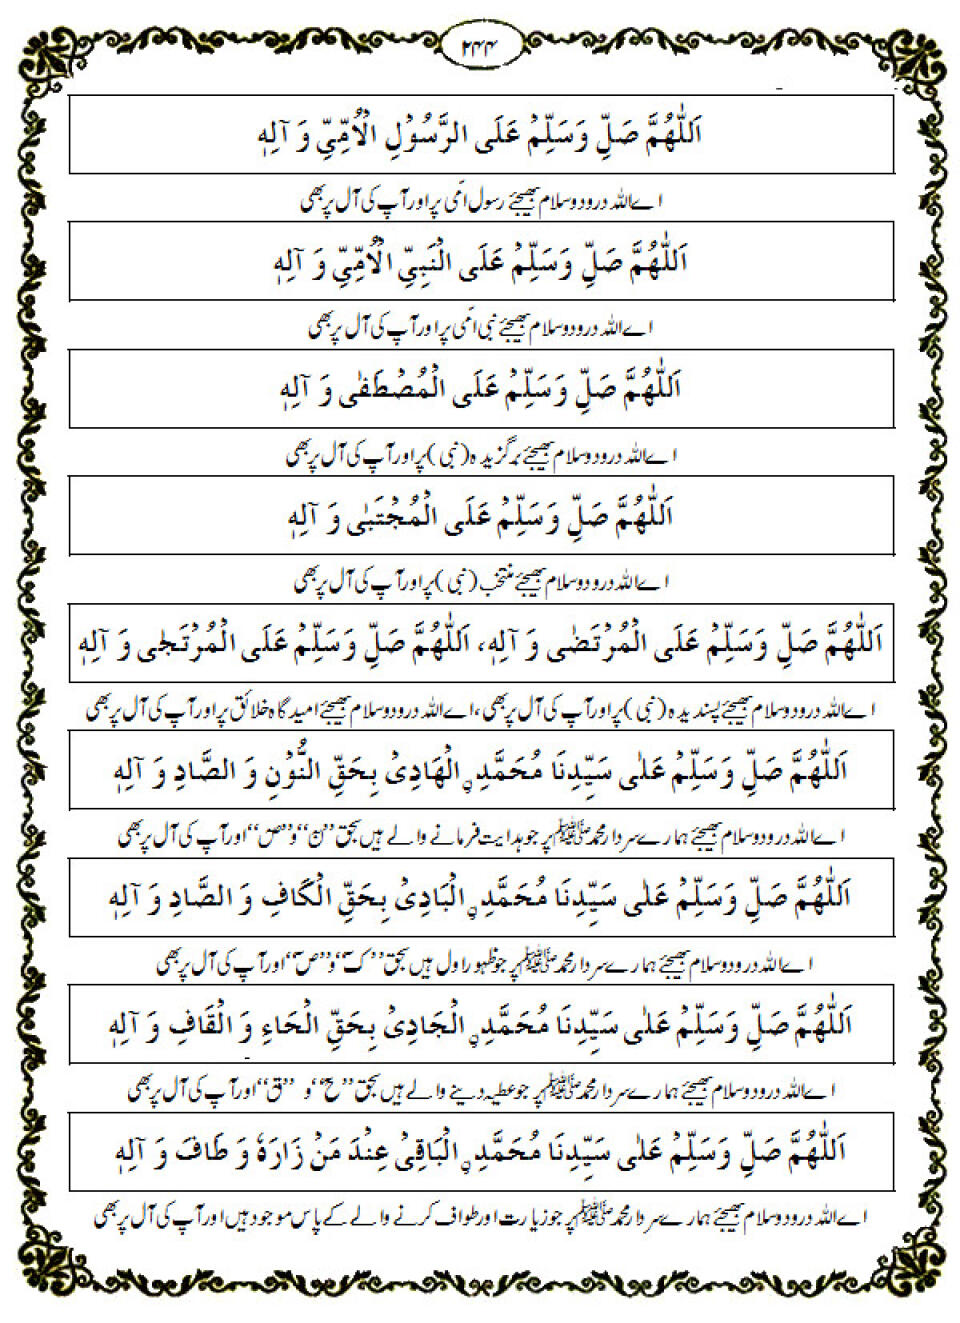 ۲۴۴
اَللّٰهُمَّ صَلِّ وَسَلِّمْ عَلَى الرَّسُوْلِ الْاُمِّيِّ وَ آلِهٖ
اے اللہ درود و سلام بھیجئے رسول امّی پر اور آپ کی آل پر بھی
اَللّٰهُمَّ صَلِّ وَسَلِّمْ عَلَى النَّبِيِّ الْاُمِّيِّ وَ آلِهٖ
اے اللہ درود و سلام بھیجئے نبی امّی پر اور آپ کی آل پر بھی
اَللّٰهُمَّ صَلِّ وَسَلِّمْ عَلَى الْمُصْطَفٰى وَ آلِهٖ
اے اللہ درود و سلام بھیجئے برگزیدہ (نبی) پر اور آپ کی آل پر بھی
اَللّٰهُمَّ صَلِّ وَسَلِّمْ عَلَى الْمُجْتَبٰى وَ آلِهٖ
اے اللہ درود و سلام بھیجئے منتخب (نبی) پر اور آپ کی آل پر بھی
اَللّٰهُمَّ صَلِّ وَسَلِّمْ عَلَى الْمُرْتَضٰى وَ آلِهٖ، اَللّٰهُمَّ صَلِّ وَسَلِّمْ عَلَى الْمُرْتَجٰى وَ آلِهٖ
اے اللہ درود و سلام بھیجئے پسندیدہ (نبی) پر اور آپ کی آل پر بھی، اے اللہ درود و سلام بھیجئے امید گاہ خلائق پر اور آپ کی آل پر بھی
اَللّٰهُمَّ صَلِّ وَسَلِّمْ عَلٰى سَيِّدِنَا مُحَمَّدِ ۣ الْهَادِىْ بِحَقِّ النُّوْنِ وَ الصَّادِ وَ آلِهٖ
اے اللہ درود و سلام بھیجئے ہمارے سردار محمد ﷺ پر جو ہدایت فرمانے والے ہیں بحق ”ن“ و ”ص“ اور آپ کی آل پر بھی
اَللّٰهُمَّ صَلِّ وَسَلِّمْ عَلٰى سَيِّدِنَا مُحَمَّدِ ۣ الْبَادِىْ بِحَقِّ الْكَافِ وَ الصَّادِ وَ آلِهٖ
اے اللہ درود و سلام بھیجئے ہمارے سردار محمد ﷺ پر جو ظہور اول ہیں بحق ”ک“ و ”ص“ اور آپ کی آل پر بھی
اَللّٰهُمَّ صَلِّ وَسَلِّمْ عَلٰى سَيِّدِنَا مُحَمَّدِ ۣ الْجَادِىْ بِحَقِّ الْحَاءِ وَ الْقَافِ وَ آلِهٖ
اے اللہ درود و سلام بھیجئے ہمارے سردار محمد ﷺ پر جو عطیہ دینے والے ہیں بحق ”ح“ و ”ق“ اور آپ کی آل پر بھی
اَللّٰهُمَّ صَلِّ وَسَلِّمْ عَلٰى سَيِّدِنَا مُحَمَّدِ ۣ الْبَاقِىْ عِنْدَ مَنْ زَارَهٗ وَ طَافَ وَ آلِهٖ
اے اللہ درود و سلام بھیجئے ہمارے سردار محمد ﷺ پر جو زیارت اور طواف کرنے والے کے پاس موجود ہیں اور آپ کی آل پر بھی